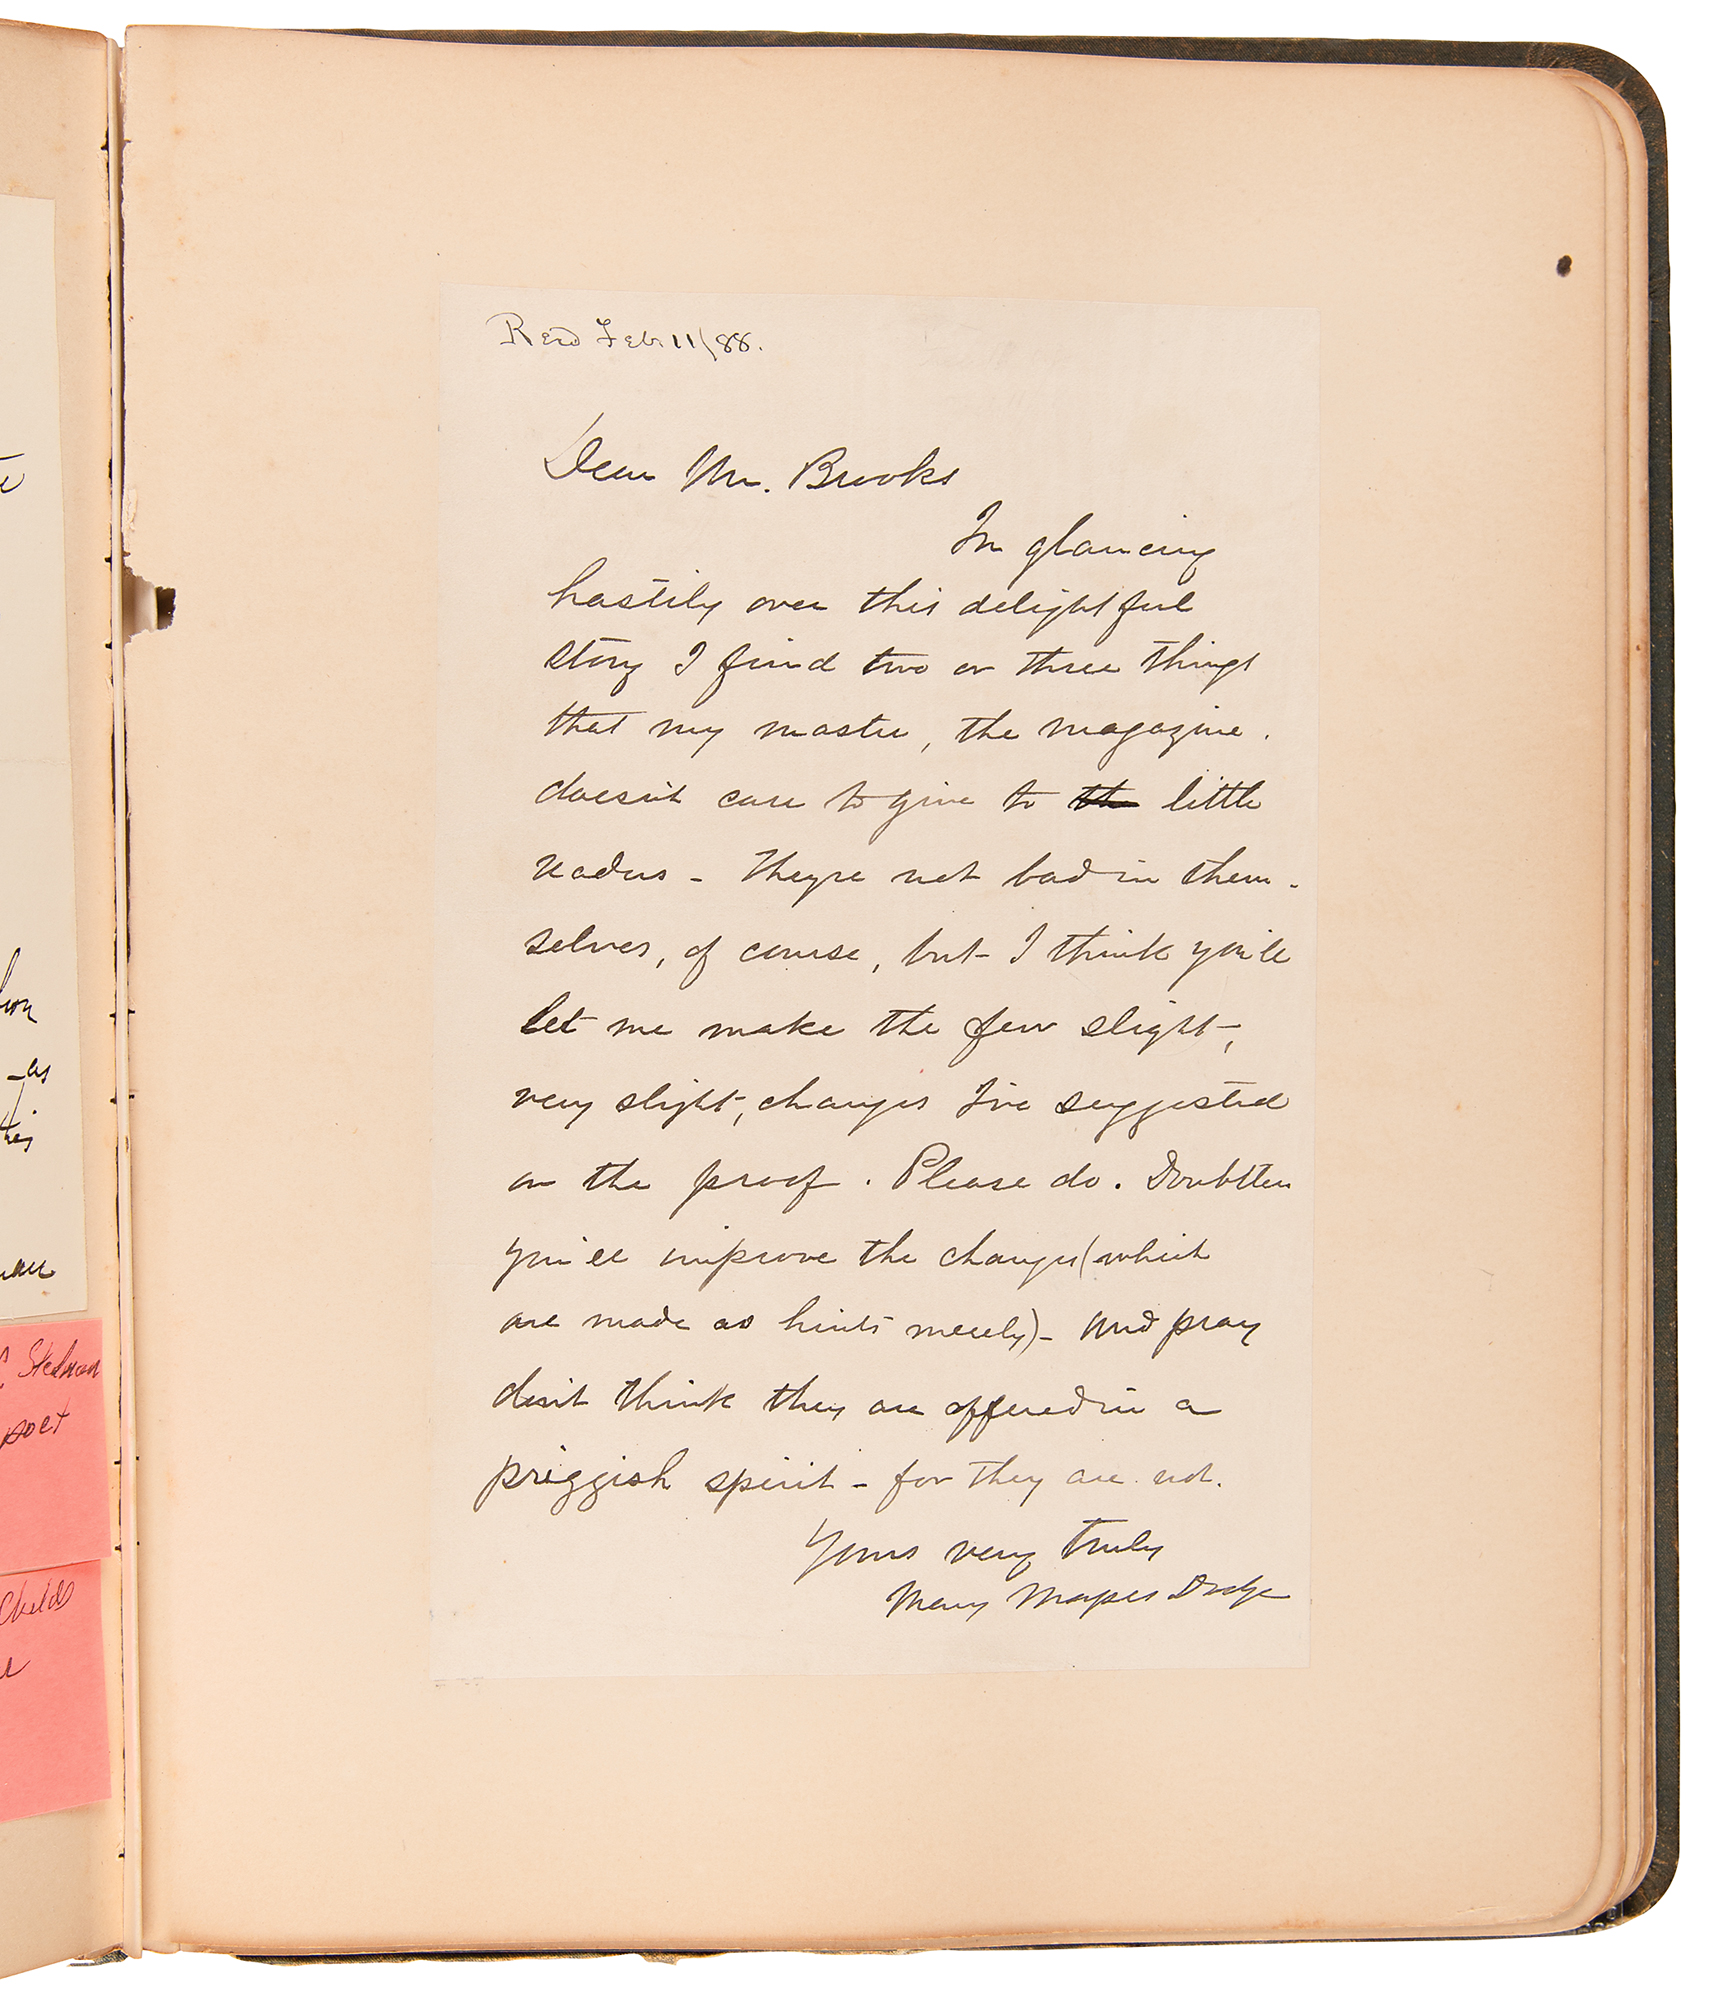 Recd Feb 11/88.
Dear Mr. Brooks
In glancing
hastily over this delightful
story I find two or three things
that my master, the magazine.
doesn't care to give to little
readers - They're not bad in them-
selves, of course, but I think you'll
let me make the few slight,
very slight, changes I've suggested
on the proof. Please do. Doubtless
you'll improve the changes (which
are made as hints merely) - And pray
don't think they are offered in a
priggish spirit - for they are not.
Yours very truly
Mary Mapes Dodge
Stedman
poet
Childs